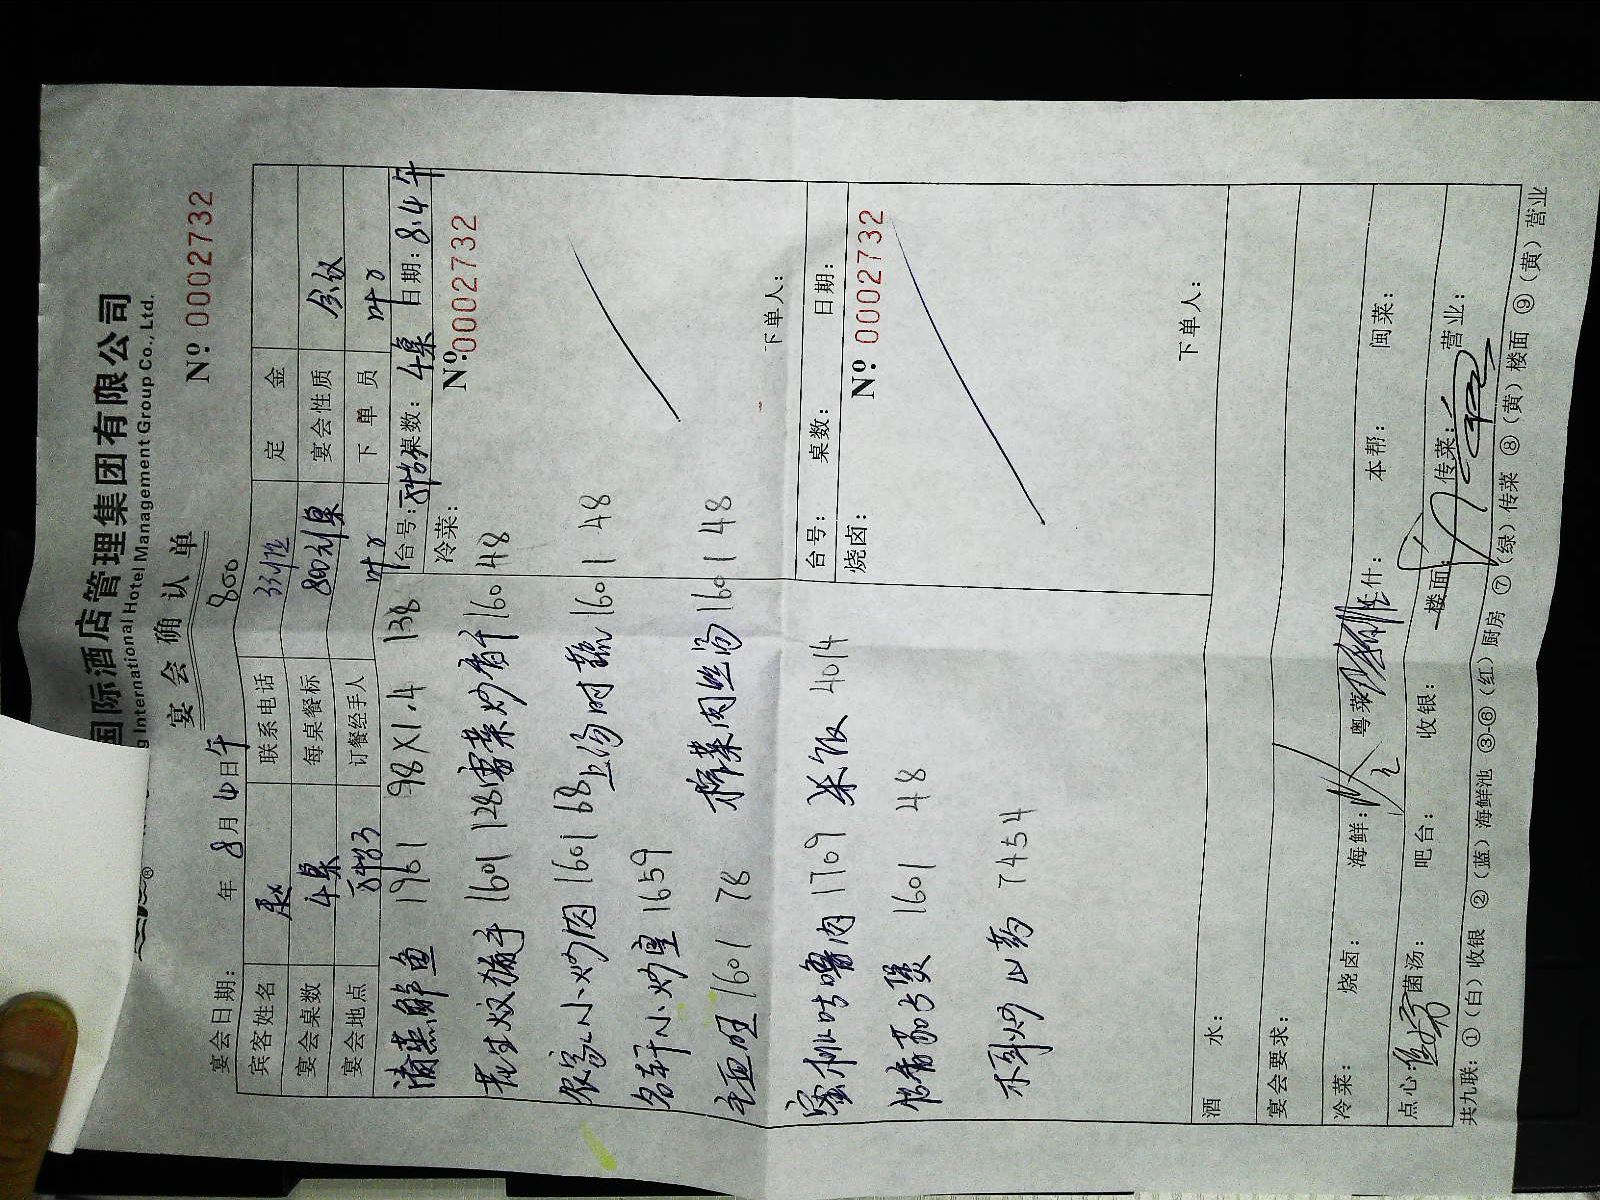 国际酒店管理集团有限公司
g International Hotel Management Group Co., Ltd.
宴会确认单
№ 0002732
宴会日期： 年 8月4日午 800
宾客姓名 赵 联系电话 定金
宴会桌数 4桌 每桌餐标 800元/桌 宴会性质 会议
宴会地点 订餐经手人 下单员
台号： 桌数：4桌 日期：8.4午
冷菜： №0002732
清蒸鲜鱼 1961 98X1.4 138
花生双猪手 1601 128 芹菜炒香干 160 48
农家小炒肉 1601 68 上汤时蔬 1601 48
名轩小炒皇 1659
毛血旺 1601 78 榨菜肉丝汤 1601 48
下单人：
台号： 桌数： 日期：
烧卤： № 0002732
蜜桃咕噜肉 1709 米饭 4014
煲 1601 48
木耳炒山药 7454
下单人：
酒 水：
宴会要求：
冷菜： 烧卤： 海鲜： 粤菜 什： 本帮： 闽菜：
点心： 菌汤： 吧台： 收银： 楼面： 传菜： 营业：
共九联：①（白）收银 ②（蓝）海鲜池 ③-⑥（红）厨房 ⑦（绿）传菜 ⑧（黄）楼面 ⑨（黄）营业